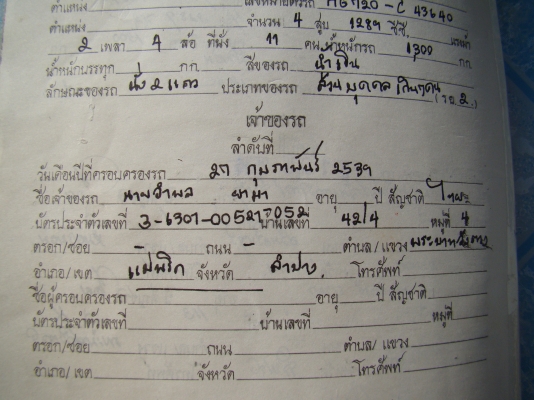 ตำแหน่ง เลขหมายตัวรถ MG120-C 43640
ตำแหน่ง จำนวน 4 สูบ 1289 ซีซี.
2 เพลา 4 ล้อ ที่นั่ง 11 คน น้ำหนักรถ 1,300 กก
น้ำหนักบรรทุก กก สีของรถ น้ำเงิน
ลักษณะของรถ นั่ง 2 แถว ประเภทของรถ ส่วนบุคคล เกิน 7 คน (รย. 2.)
เจ้าของรถ
ลำดับที่
วันเดือนปีที่ครอบครองรถ 27 กุมภาพันธ์ 2539
ชื่อเจ้าของรถ อายุ ปี สัญชาติ ไทย
บัตรประจำตัวเลขที่ บ้านเลขที่ 42/4 หมู่ที่ 4
ตรอก/ซอย - ถนน - ตำบล/แขวง
อำเภอ/เขต แม่พริก จังหวัด ลำปาง. โทรศัพท์
ชื่อผู้ครอบครองรถ อายุ ปี สัญชาติ
บัตรประจำตัวเลขที่ บ้านเลขที่ หมู่ที่
ตรอก/ซอย ถนน ตำบล/แขวง
อำเภอ/เขต จังหวัด โทรศัพท์